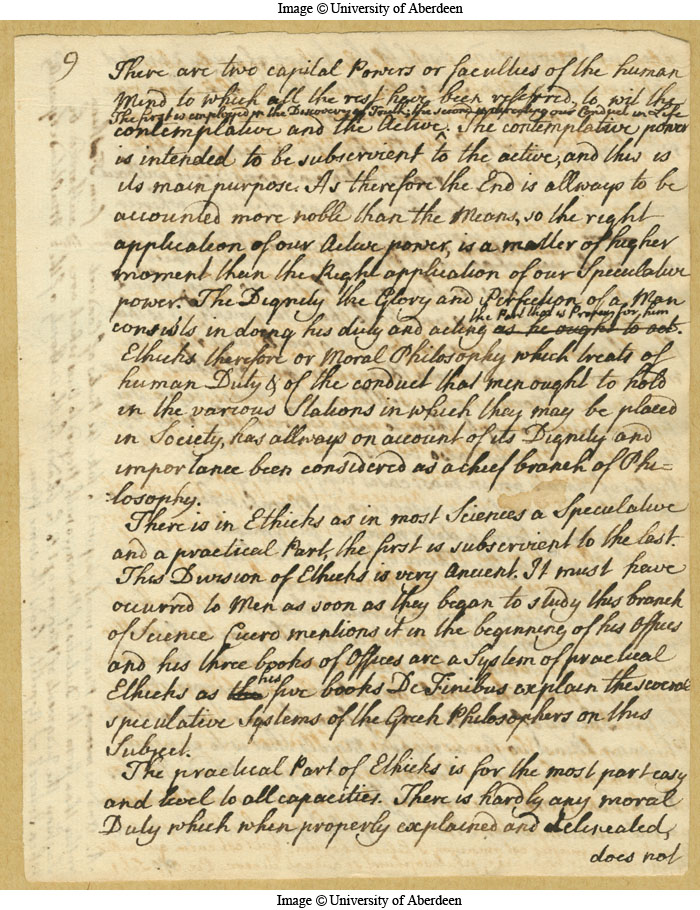 Image © University of Aberdeen
9
There are two capital Powers or faculties of the human
Mind to which all the rest have been referred, to wit the
The first is employed in the Discovery of Truth, the second in directing our Conduct in Life
contemplative and the Active. ^ The contemplative power
is intended to be subservient to the active, and this is
its main purpose. As therefore the End is allways to be
accounted more noble than the Means, so the right
application of our Active power, is a matter of higher
moment than the Right application of our Speculative
power. The Dignity the Glory and Perfection of a Man
the Part that is Proper for him
consists in doing his duty and acting as he ought to act.
Ethicks therefore or Moral Philosophy which treats of
human Duty & of the conduct that men ought to hold
in the various Stations in which they may be placed
in Society, has allways on account of its Dignity and
importance been considered as a chief branch of Phi=
losophy.
There is in Ethicks as in most Sciences a Speculative
and a practical Part, the first is subservient to the last.
This Division of Ethicks is very Ancient. It must have
occurred to Men as soon as they began to study this branch
of Science Cicero mentions it in the beginning of his Offices
and his three books of Offices are a System of practical
his
Ethicks as the five books De Finibus explain the several
speculative Systems of the Greek Philosophers on this
Subject.
The practical Part of Ethicks is for the most part easy
and level to all capacities. There is hardly any moral
Duty which when properly explained and delineated,
does not
Image © University of Aberdeen